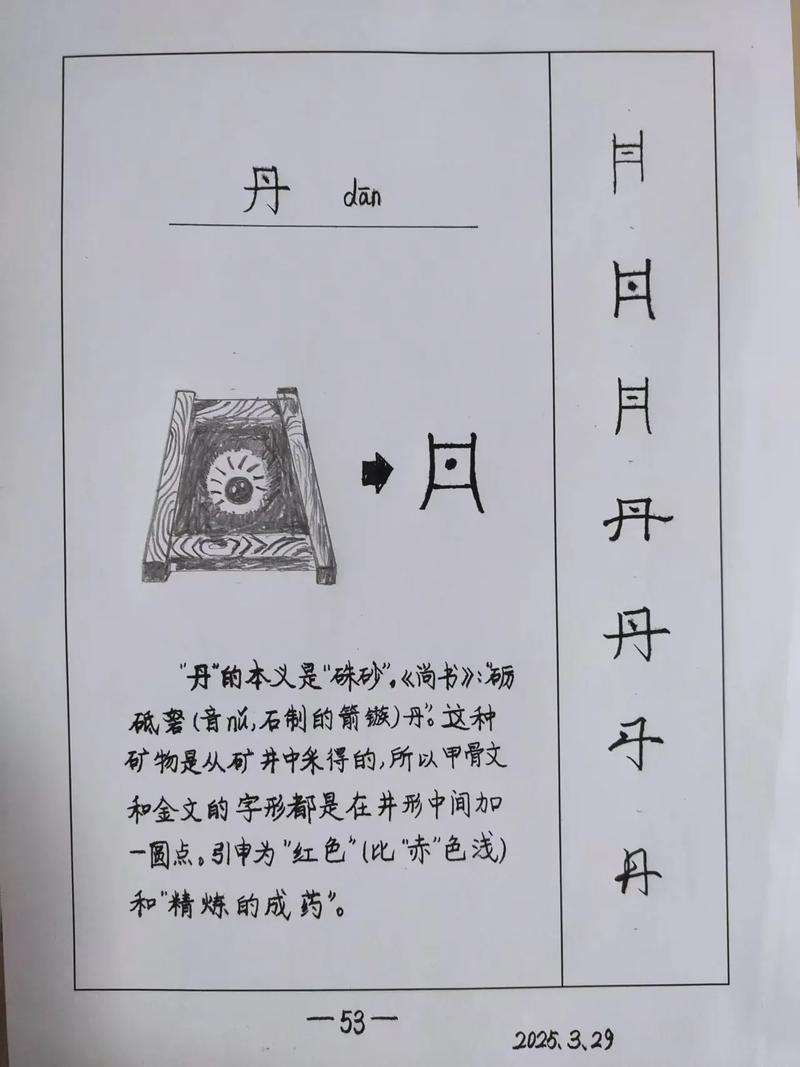 丹 dān
"丹"的本义是"硃砂"。《尚书》:"砺
砥砮(音nǔ,石制的箭镞)丹"。这种
矿物是从矿井中采得的,所以甲骨文
和金文的字形都是在井形中间加
一圆点。引申为"红色"(比"赤"色浅)
和"精炼的成药"。
丹
丹
丹
丹
—53—
2025.3.29